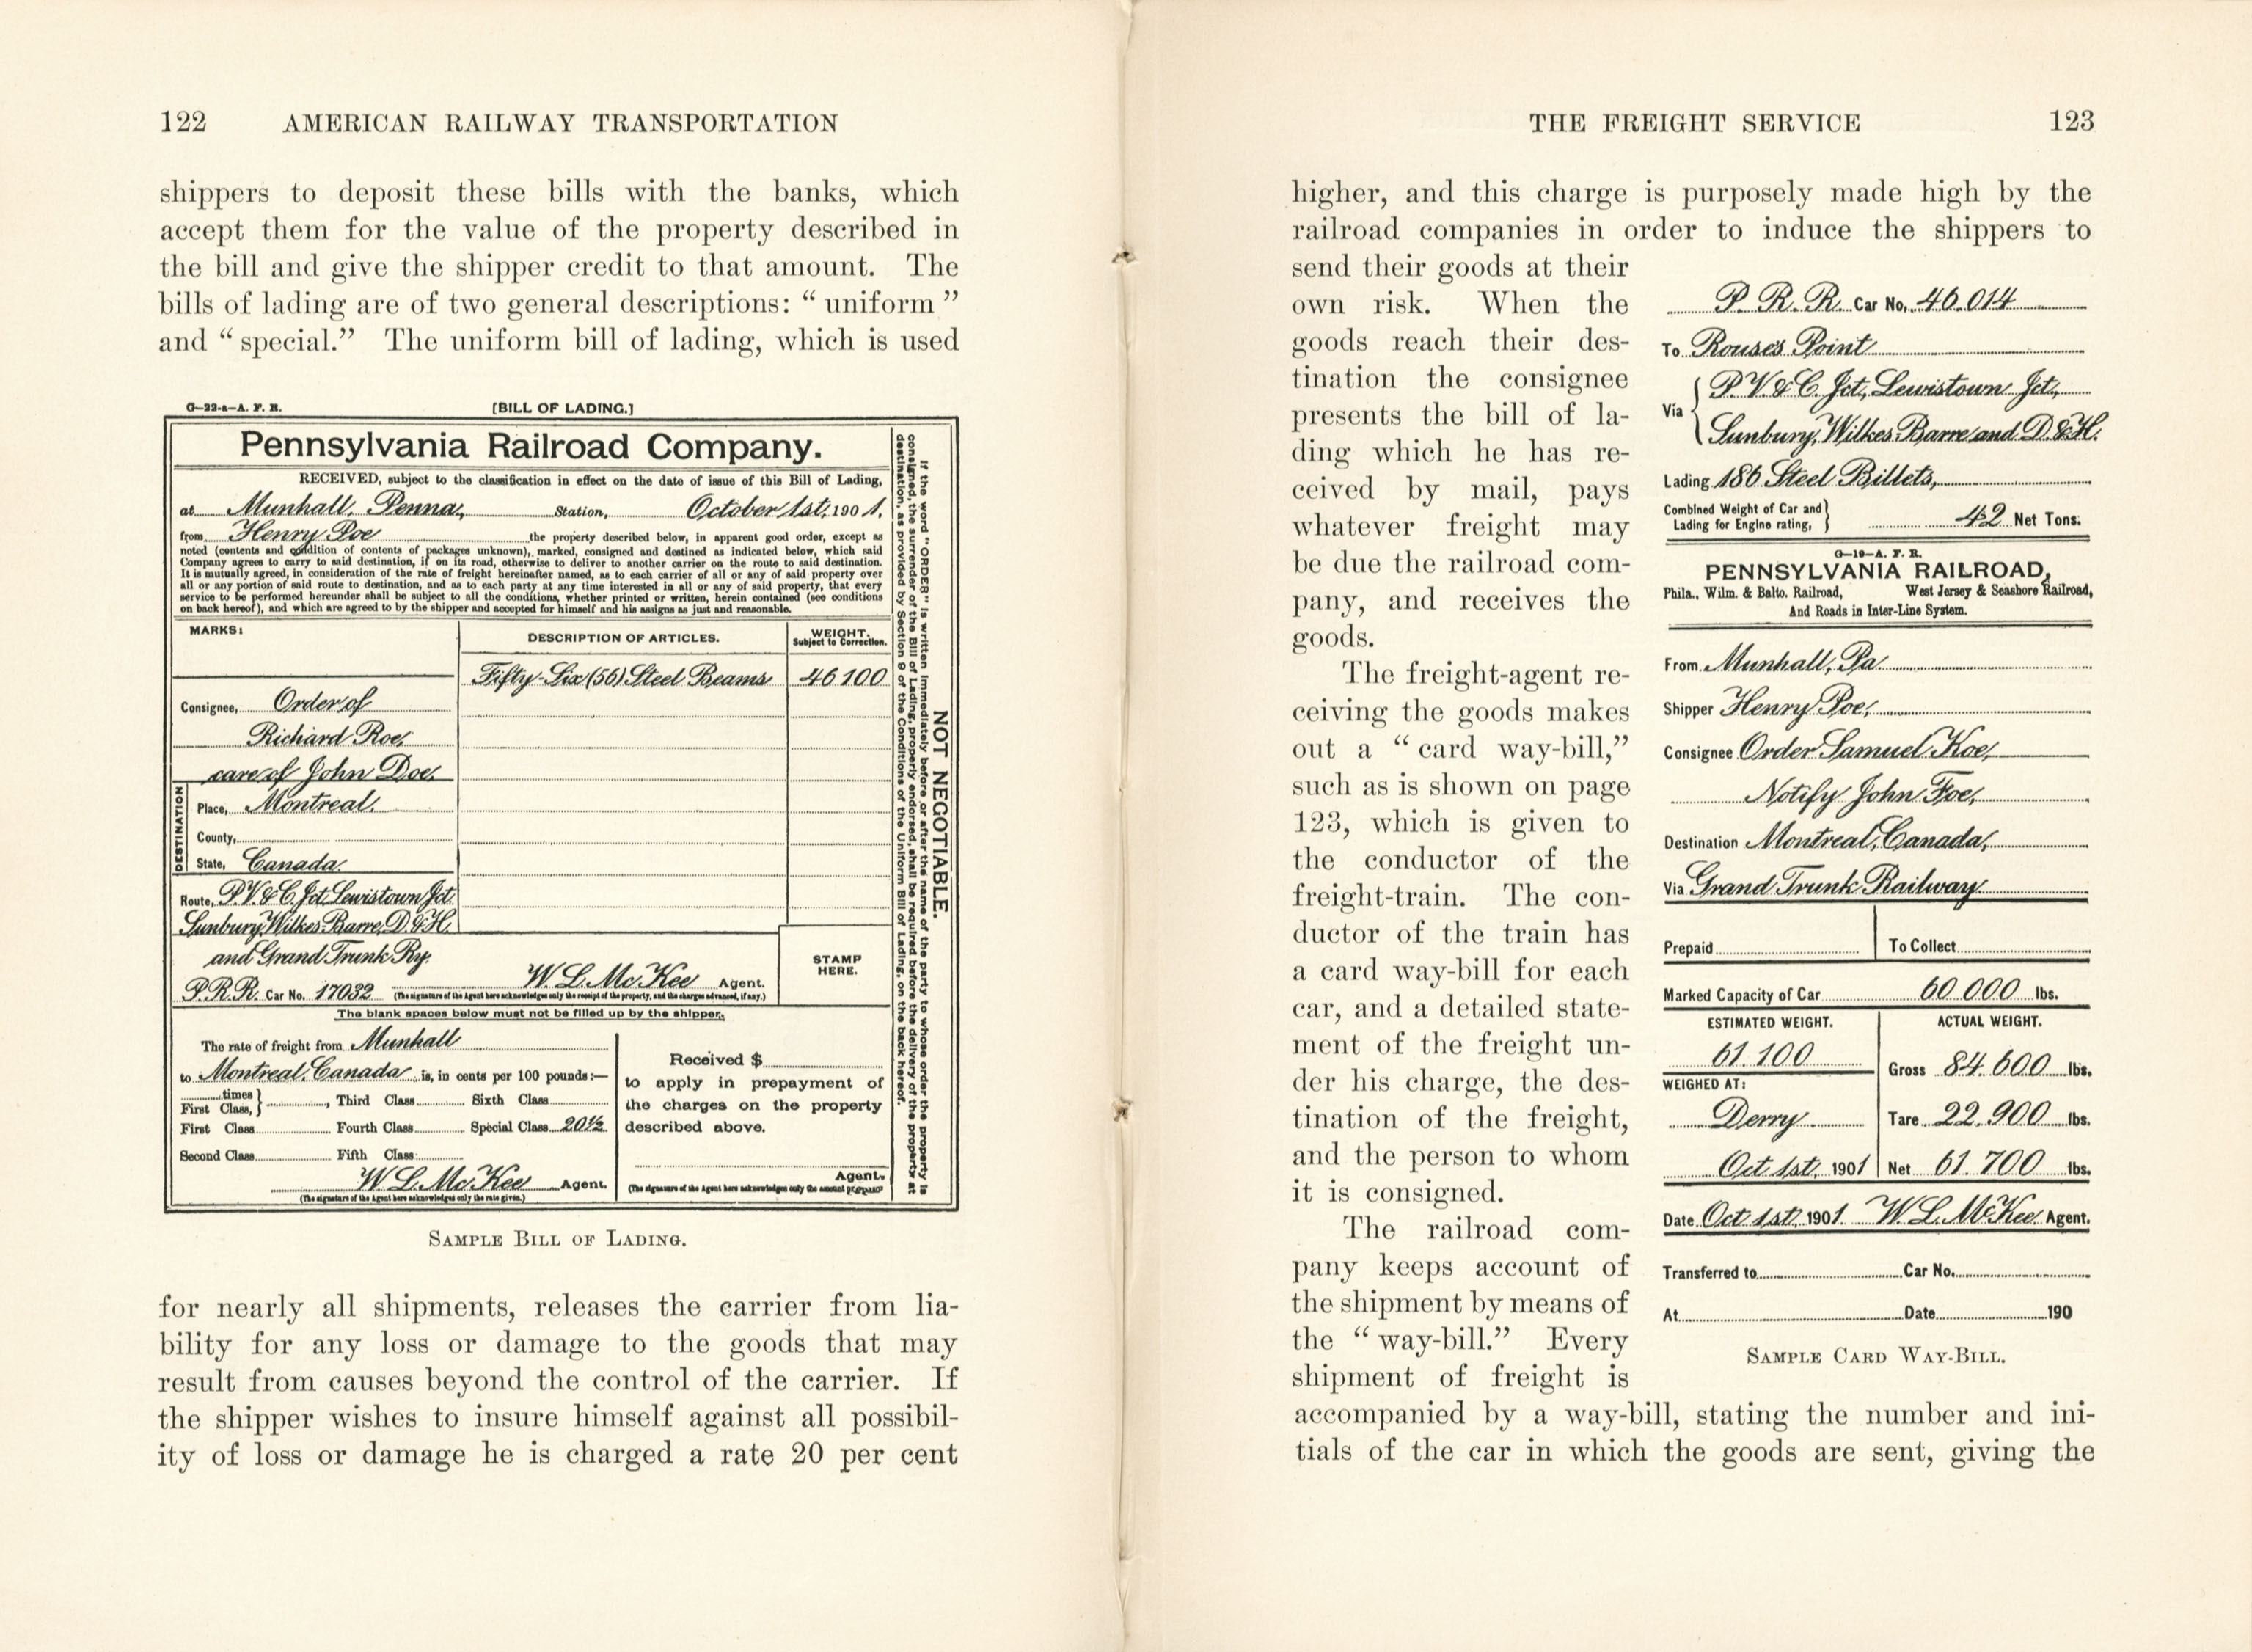 122 AMERICAN RAILWAY TRANSPORTATION
shippers to deposit these bills with the banks, which
accept them for the value of the property described in
the bill and give the shipper credit to that amount. The
bills of lading are of two general descriptions: “ uniform ”
and “ special.” The uniform bill of lading, which is used
G—22-a—A. F. R. [BILL OF LADING.]
Pennsylvania Railroad Company.
RECEIVED, subject to the classification in effect on the date of issue of this Bill of Lading,
at Munhall, Penna, Station, October 1st, 1901.
from Henry Poe the property described below, in apparent good order, except as
noted (contents and condition of contents of packages unknown), marked, consigned and destined as indicated below, which said
Company agrees to carry to said destination, if on its road, otherwise to deliver to another carrier on the route to said destination.
It is mutually agreed, in consideration of the rate of freight hereinafter named, as to each carrier of all or any of said property over
all or any portion of said route to destination, and as to each party at any time interested in all or any of said property, that every
service to be performed hereunder shall be subject to all the conditions, whether printed or written, herein contained (see conditions
on back hereof), and which are agreed to by the shipper and accepted for himself and his assigns as just and reasonable.
MARKS: DESCRIPTION OF ARTICLES. WEIGHT.
Subject to Correction.
Fifty-Six (56) Steel Beams 46100
Consignee, Order of
Richard Roe,
care of John Doe.
DESTINATION
Place, Montreal.
County,
State, Canada.
Route, P.V.&C. Jct, Lewistown Jct
Sunbury, Wilkes-Barre, D.&H.
and Grand Trunk Ry.
P.R.R. Car No. 17032 W L. McKee Agent.
(The signature of the Agent here acknowledges only the receipt of the property, and the charges advanced, if any.)
STAMP
HERE.
The blank spaces below must not be filled up by the shipper.
The rate of freight from Munhall
to Montreal, Canada is, in cents per 100 pounds:—
times
First Class, } Third Class Sixth Class
First Class Fourth Class Special Class 20½
Second Class Fifth Class
W L. McKee Agent.
(The signature of the Agent here acknowledges only the rate given.)
Received $
to apply in prepayment of
the charges on the property
described above.
Agent.
(The signature of the Agent here acknowledges only the amount prepaid)
If the word “ORDER” is written immediately before or after the name of the party to whose order the property is
consigned, the surrender of the Bill of Lading, properly endorsed, shall be required before the delivery of the property at
destination, as provided by Section 9 of the Conditions of the Uniform Bill of Lading, on the back hereof.
NOT NEGOTIABLE.
SAMPLE BILL OF LADING.
for nearly all shipments, releases the carrier from lia-
bility for any loss or damage to the goods that may
result from causes beyond the control of the carrier. If
the shipper wishes to insure himself against all possibil-
ity of loss or damage he is charged a rate 20 per cent
THE FREIGHT SERVICE 123
higher, and this charge is purposely made high by the
railroad companies in order to induce the shippers to
send their goods at their
own risk. When the
goods reach their des-
tination the consignee
presents the bill of la-
ding which he has re-
ceived by mail, pays
whatever freight may
be due the railroad com-
pany, and receives the
goods.
The freight-agent re-
ceiving the goods makes
out a “ card way-bill,”
such as is shown on page
123, which is given to
the conductor of the
freight-train. The con-
ductor of the train has
a card way-bill for each
car, and a detailed state-
ment of the freight un-
der his charge, the des-
tination of the freight,
and the person to whom
it is consigned.
The railroad com-
pany keeps account of
the shipment by means of
the “ way-bill.” Every
shipment of freight is
P. R. R. Car No. 46.014
To Rouse's Point
Via { P.V.&C. Jct, Lewistown Jct,
Sunbury, Wilkes-Barre and D.&H.
Lading 186 Steel Billets,
Combined Weight of Car and
Lading for Engine rating, } 42 Net Tons.
G—19—A. F. R.
PENNSYLVANIA RAILROAD,
Phila., Wilm. & Balto. Railroad, West Jersey & Seashore Railroad,
And Roads in Inter-Line System.
From Munhall, Pa
Shipper Henry Poe,
Consignee Order Samuel Koe,
Notify John Foe,
Destination Montreal, Canada,
Via Grand Trunk Railway
Prepaid To Collect
Marked Capacity of Car 60 000 lbs.
ESTIMATED WEIGHT. ACTUAL WEIGHT.
61.100 Gross 84.600 lbs.
WEIGHED AT:
Derry Tare 22.900 lbs.
Oct 1st, 1901 Net 61.700 lbs.
Date Oct 1st, 1901. W L. McKee Agent.
Transferred to Car No.
At Date 190
SAMPLE CARD WAY-BILL.
accompanied by a way-bill, stating the number and ini-
tials of the car in which the goods are sent, giving the